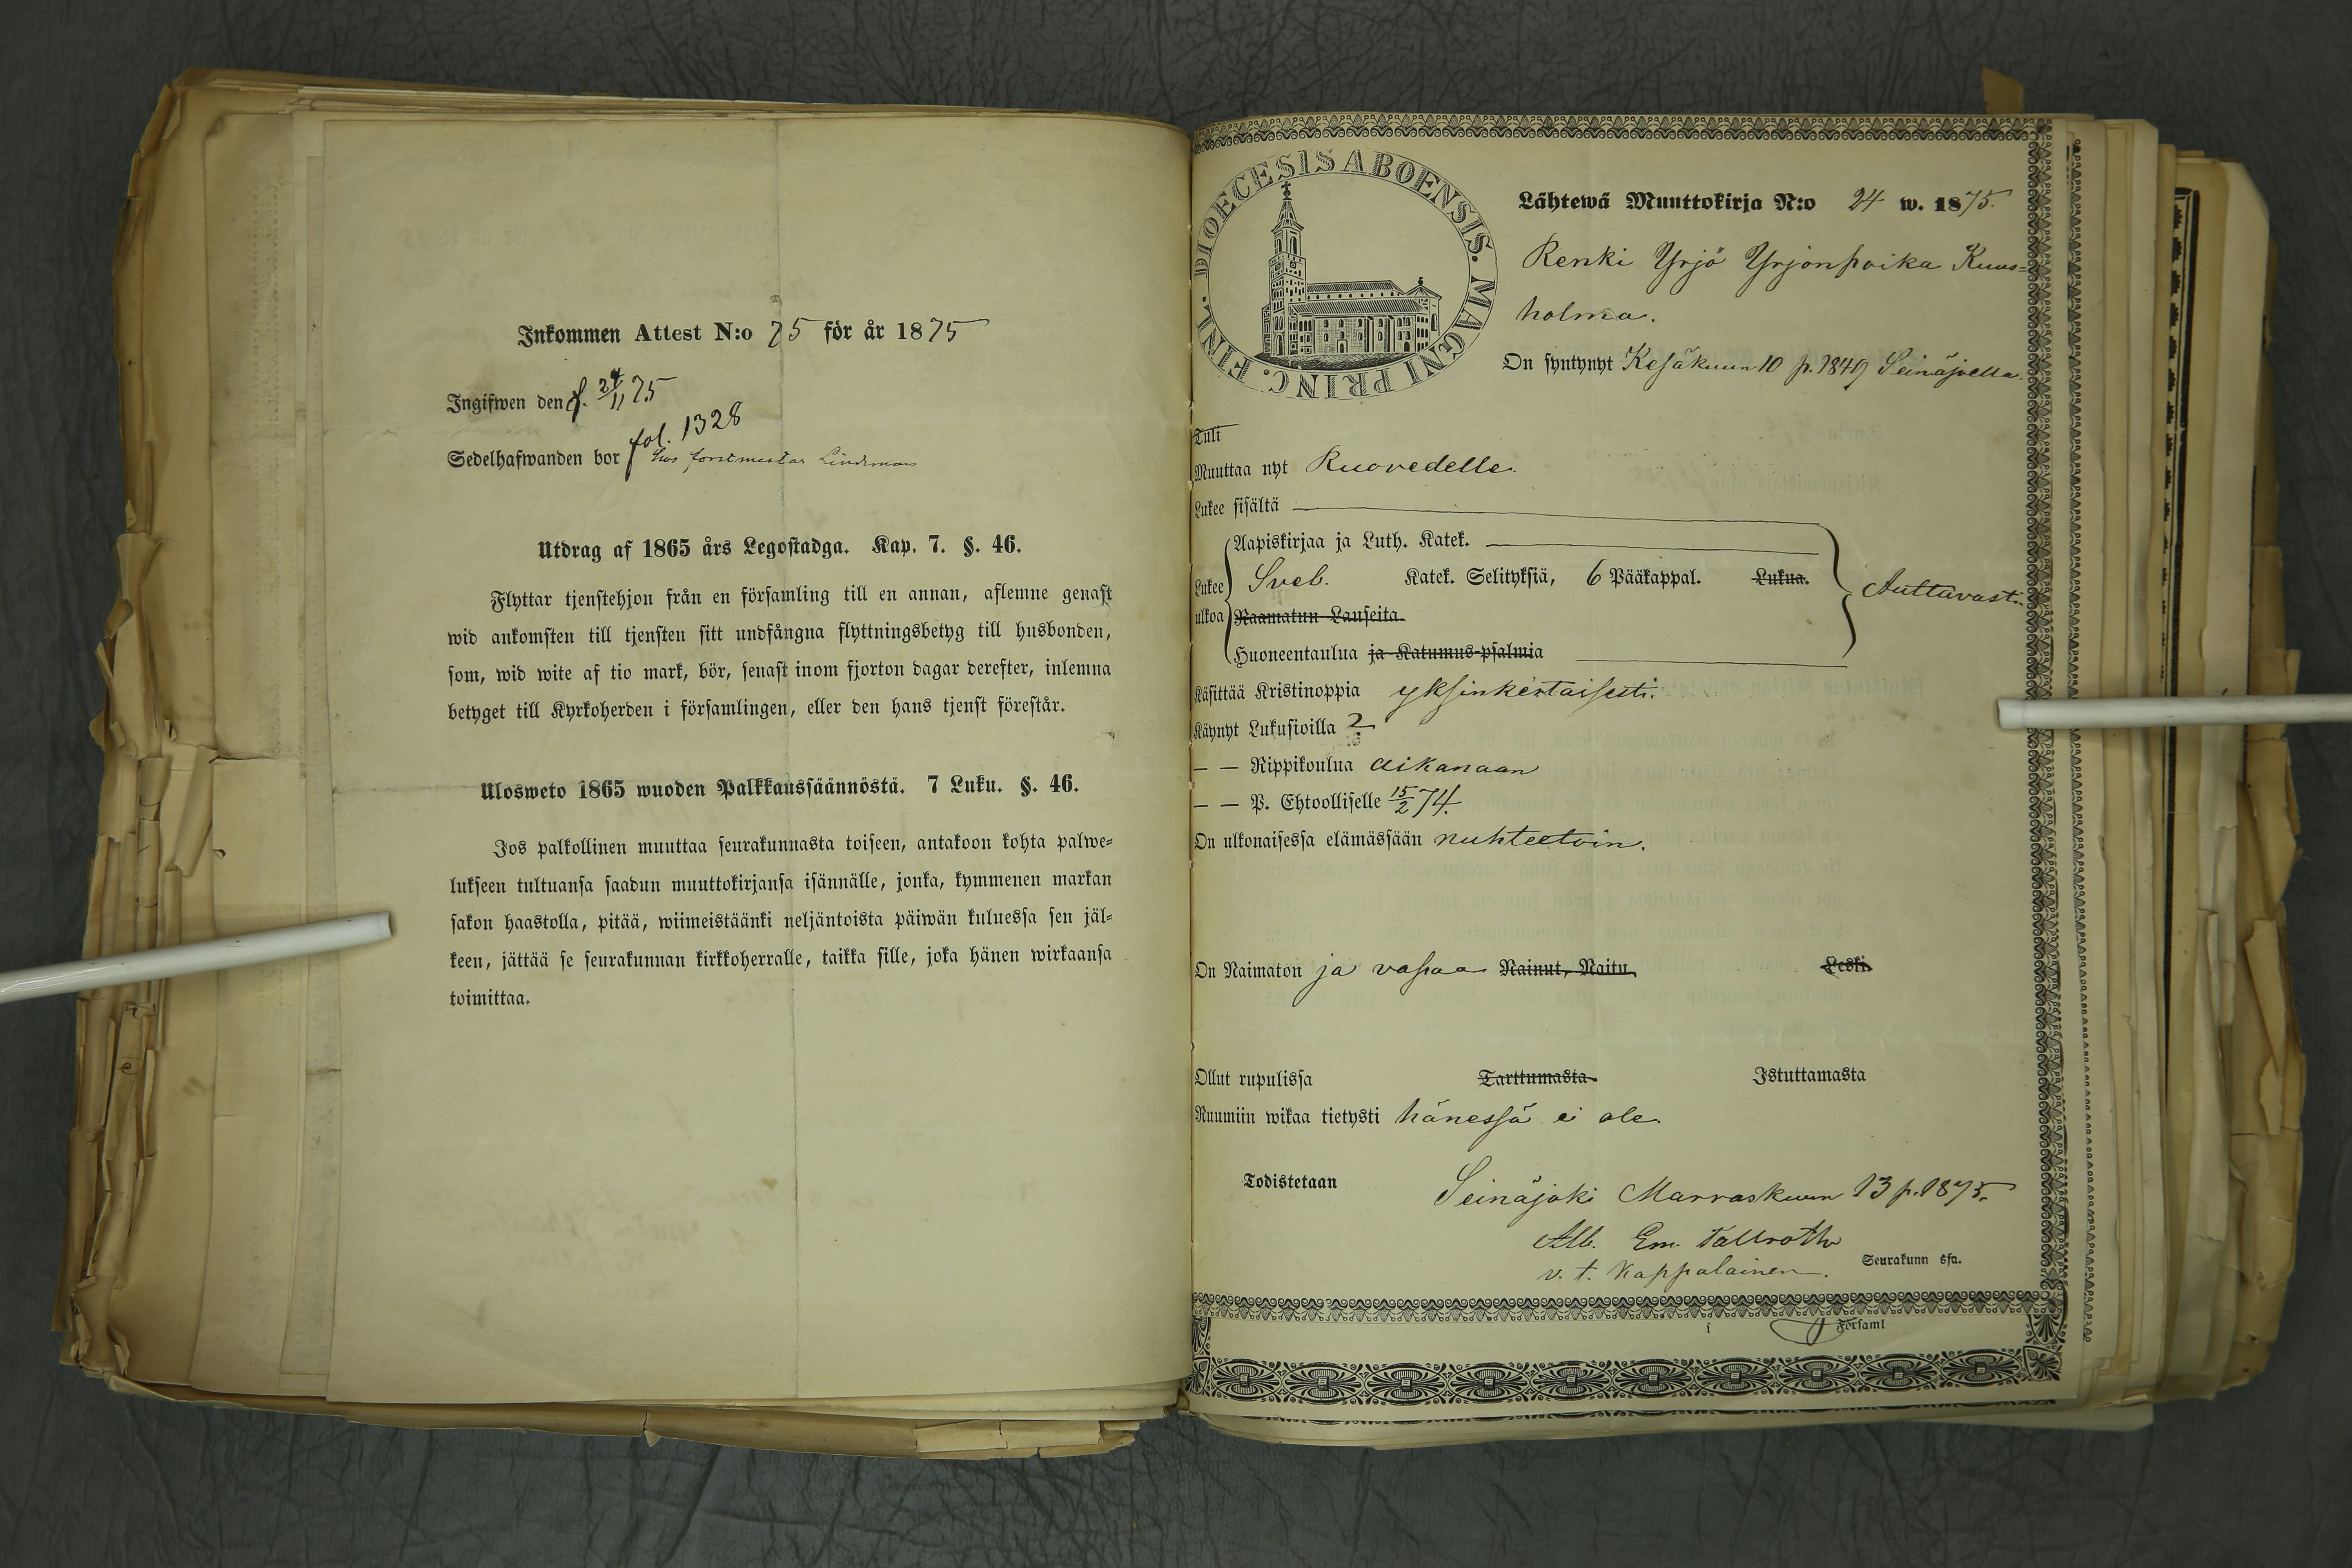 Inkommen Attest N:o 75 för år 1875
Ingifwen den d. 24/11 75
fol. 1328
Sedelhafwanden bor hos forstmestar Lindeman
Utdrag af 1865 års Legostadga. Kap. 7. §. 46.
Flyttar tjenstehjon från en församling till en annan, aflemne genast
wid ankomsten till tjensten sitt undfångna flyttningsbetyg till husbonden,
som, wid wite af tio mark, bör, senast inom fjorton dagar derefter, inlemna
betyget till Kyrkoherden i församlingen, eller den hans tjenst förestår.
Ulosweto 1865 wuoden Palkkaussäännöstä. 7 Luku. §. 46.
Jos palkollinen muuttaa seurakunnasta toiseen, antakoon kohta palwe=
lukseen tultuansa saadun muuttokirjansa isännälle, jonka, kymmenen markan
sakon haastolla, pitää, wiimeistäänki neljäntoista päiwän kuluessa sen jäl=
keen, jättää se seurakunnan kirkkoherralle, taikka sille, joka hänen wirkaansa
toimittaa.
DIOECESIS ABOENSIS. MAGNI PRINC. FINL.
Lähtewä Muuttokirja N:o 24 w. 1875.
Renki Yrjö Yrjönpoika Kuus=
holma.
On syntynyt Kesäkuun 10 p. 1849 Seinäjoella.
Tuli
Muuttaa nyt Ruovedelle.
Lukee sisältä
Aapiskirjaa ja Luth. Katek.
Lukee ulkoa Sveb. Katek. Selityksiä, 6 Pääkappal. Lukua. Auttavasti.
Raamatun Lauseita
Huoneentaulua ja Katumus-psalmia
Käsittää Kristinoppia yksinkertaisesti.
Käynyt Lukusioilla 2
— — Rippikoulua aikanaan
— — P. Ehtoolliselle 15/2 74.
On ulkonaisessa elämässään nuhteetoin.
On Naimaton ja vapaa Nainut, Naitu Leski.
Ollut rupulissa Tarttumasta Istuttamasta
Ruumiin wikaa tietysti hänessä ei ole.
Todistetaan Seinäjoki Marraskuun 13 p. 1875.
Alb. Em. Tallroth
v. t. Kappalainen. Seurakunn ssa.
i Församl